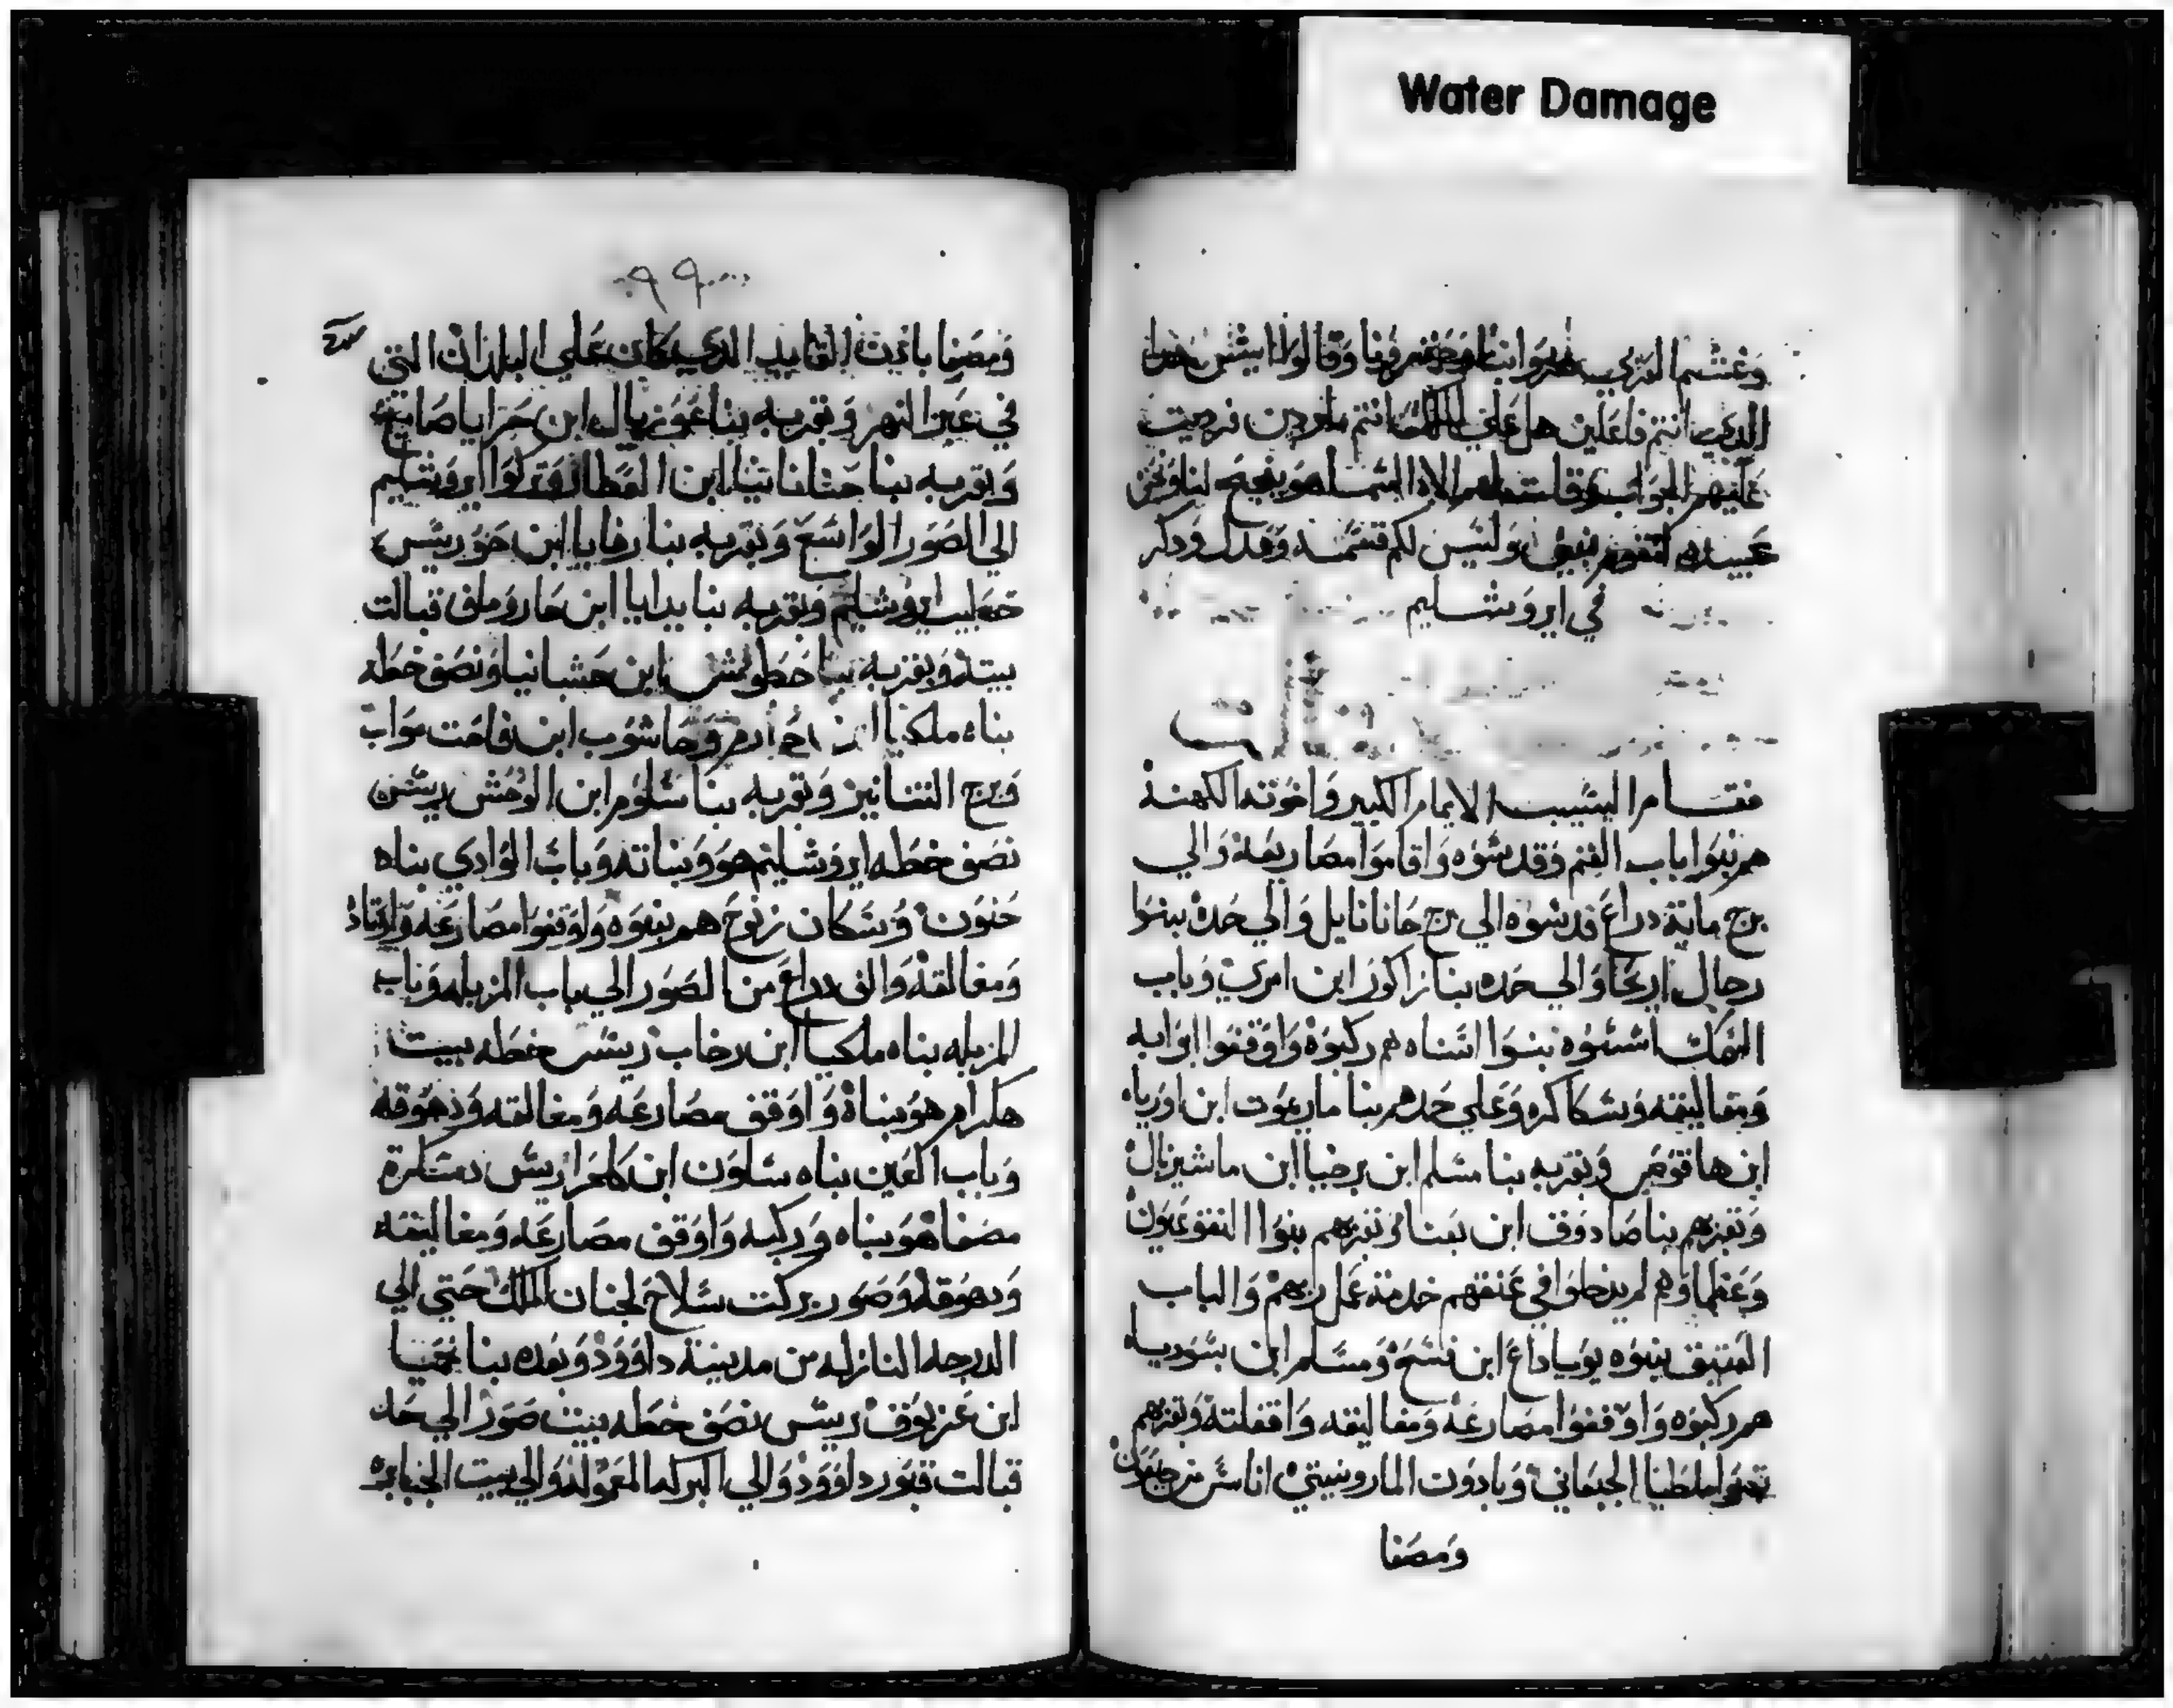 Water Damage
وغشم العربي هزوا بنا وحقرونا وقالوا ايش هدا
الدي انتم فاعلين هل علي الملك انتم ماردين فرديت
عليهم الجواب وقلت لهم الاه السما هو ينجح لنا ونحن
عبيده نقوم نبني وليس لكم قسمه وعدل ودكر
في ايروشليم
فقام اليشيب الامام الكبير واخوته الكهنه
هم بنوا باب الغنم وقدشوه واقاموا مصاريعه والي
برج ماية دراع قدشوه الي برج حانانايل والي حده بنوا
رجال اريحا والي حده بنا زاكور ابن امري وباب
السمك اسسوه بنوا اسناه هم ركبوه واوقفوا ابوابه
ومغاليقه وسكاكره وعلي حدهم بنا ماريموت ابن اورياه
ابن هاقوص وبقربه بنا مسلم ابن برخيا ابن ماشيزبال
وبقربهم بنا صادوق ابن بعنا وبقربهم بنوا التقوعيون
وعظماوهم لم يدخلوا في عنقهم خدمة عمل ربهم والباب
العتيق بنوه يوياداع ابن فسح ومسلم ابن بسودياه
هم ركبوه واوقفوا مصارعه ومغاليقه واقفلته وبقربهم
بنوا ملطيا الجبعاني ويادون الماروني اناس من جبعون
ومصفا
٩٩
ومصفا باديت القايد الدي كان علي البلدان التي
في عبر النهر وبقربه بنا عوزيال ابن حرايا صايغ
وبقربه بنا حنانا نيا ابن العطار وتركوا ايروشليم
الي الصور الواسع وبقربه بنا رفايا ابن حور ريس
خطة ايروشليم وبقربه بنا يدايا ابن حاروماف قبالت
بيته وبقربه بنا حطوش ابن حشبانيا ونصف خطه
بناه ملكيا ابن حارم وحاشوب ابن فاحت مواب
وبرج التنانير وبقربه بنا سلوم ابن الوحش ريس
نصف خطه ايروشليم هو وبناته وباب الوادي بناه
حنون وسكان زنوح هم بنوه واوقفوا مصارعه واوتاد
ومغالقه والف دراع من الصور الي باب المزبله وباب
المزبله بناه ملكيا ابن رخاب ريس خطه بيت
هكرام هو بناه واوقف مصارعه ومغالقه ودهوقه
وباب العين بناه سلون ابن كلحزا ريس دسكرة
مصفا هو بناه وركبه واوقف مصارعه ومغاليقه
ودهوقه وصور بركت سلاح لجنان الملك حتي الي
الدرجه النازله من مدينة داوود وبعده بنا نحميا
ابن عزبوق ريس نصف خطه بيت صور الي حد
قبالت قبور داوود والي البركه المعموله والي بيت الجبابره